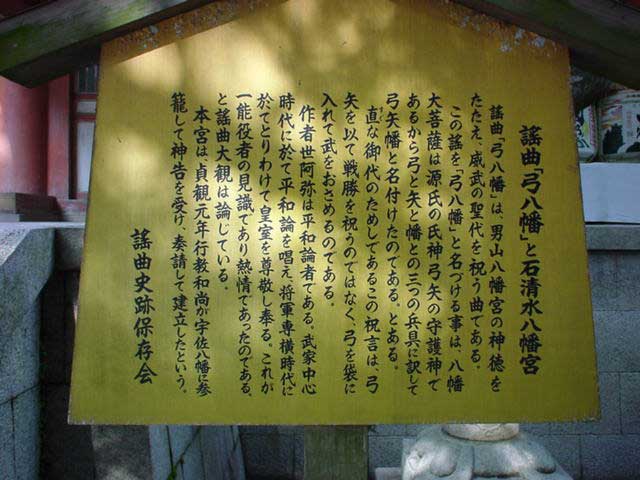 謡曲「弓八幡」と石清水八幡宮
謡曲「弓八幡」は、男山八幡宮の神徳を
たたえ、威武の聖代を祝う曲である。
この謡を「弓八幡」と名づける事は、八幡
大菩薩は源氏の氏神弓矢の守護神で
あるから弓と矢と幡との三つの兵具に訳して
弓矢幡と名付けたのである。とある。
直な御代のためしであるこの祝言は、弓
矢を以て戦勝を祝うのではなく、弓を袋に
入れて武をおさめるのである。
作者世阿弥は平和論者である。武家中心
時代に於て平和論を唱え、将軍専横時代に
於てとりわけて皇室を尊敬し奉る。これが
一能役者の見識であり熱情であったのである、
と謡曲大観は論じている。
本宮は、貞観元年行教和尚が宇佐八幡に参
籠して神告を受け、奏請して建立したという。
謡曲史跡保存会